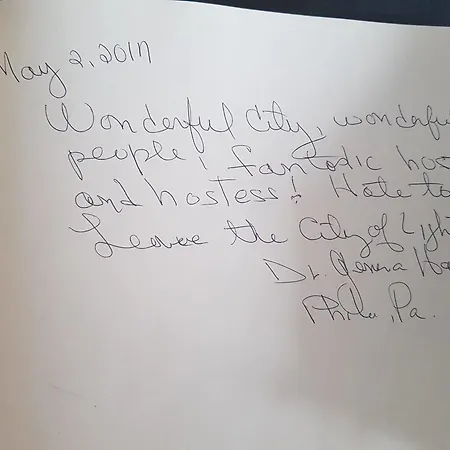 May 2, 2017
Wonderful City, wonderful
people, fantodic hos
and hostess! Hate to
Leave the City of Light
Dr. Geneva
Phila, Pa.